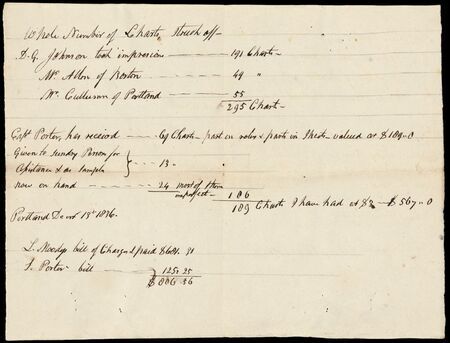 Whole Number of Charts struck off—
D. G. Johnson took impressions — 191 Charts—
Mr. Allen of Boston — 49 "
Mr. Cullinan of Portland — 55
295 Chart—
Capt Porter, has received — 69 Charts— part on roles & parts in Sheets valued at $189=0
Given to Sundry Person for
Assistance & as samples } 13"
now on hand — 24 most of them
imperfect— 106
189 Charts I have had at $3— $567=0
Portland 13th 1836.
L. Moodys bill of Charges I paid $681.
S. Porter bill — 125.25
$806.36